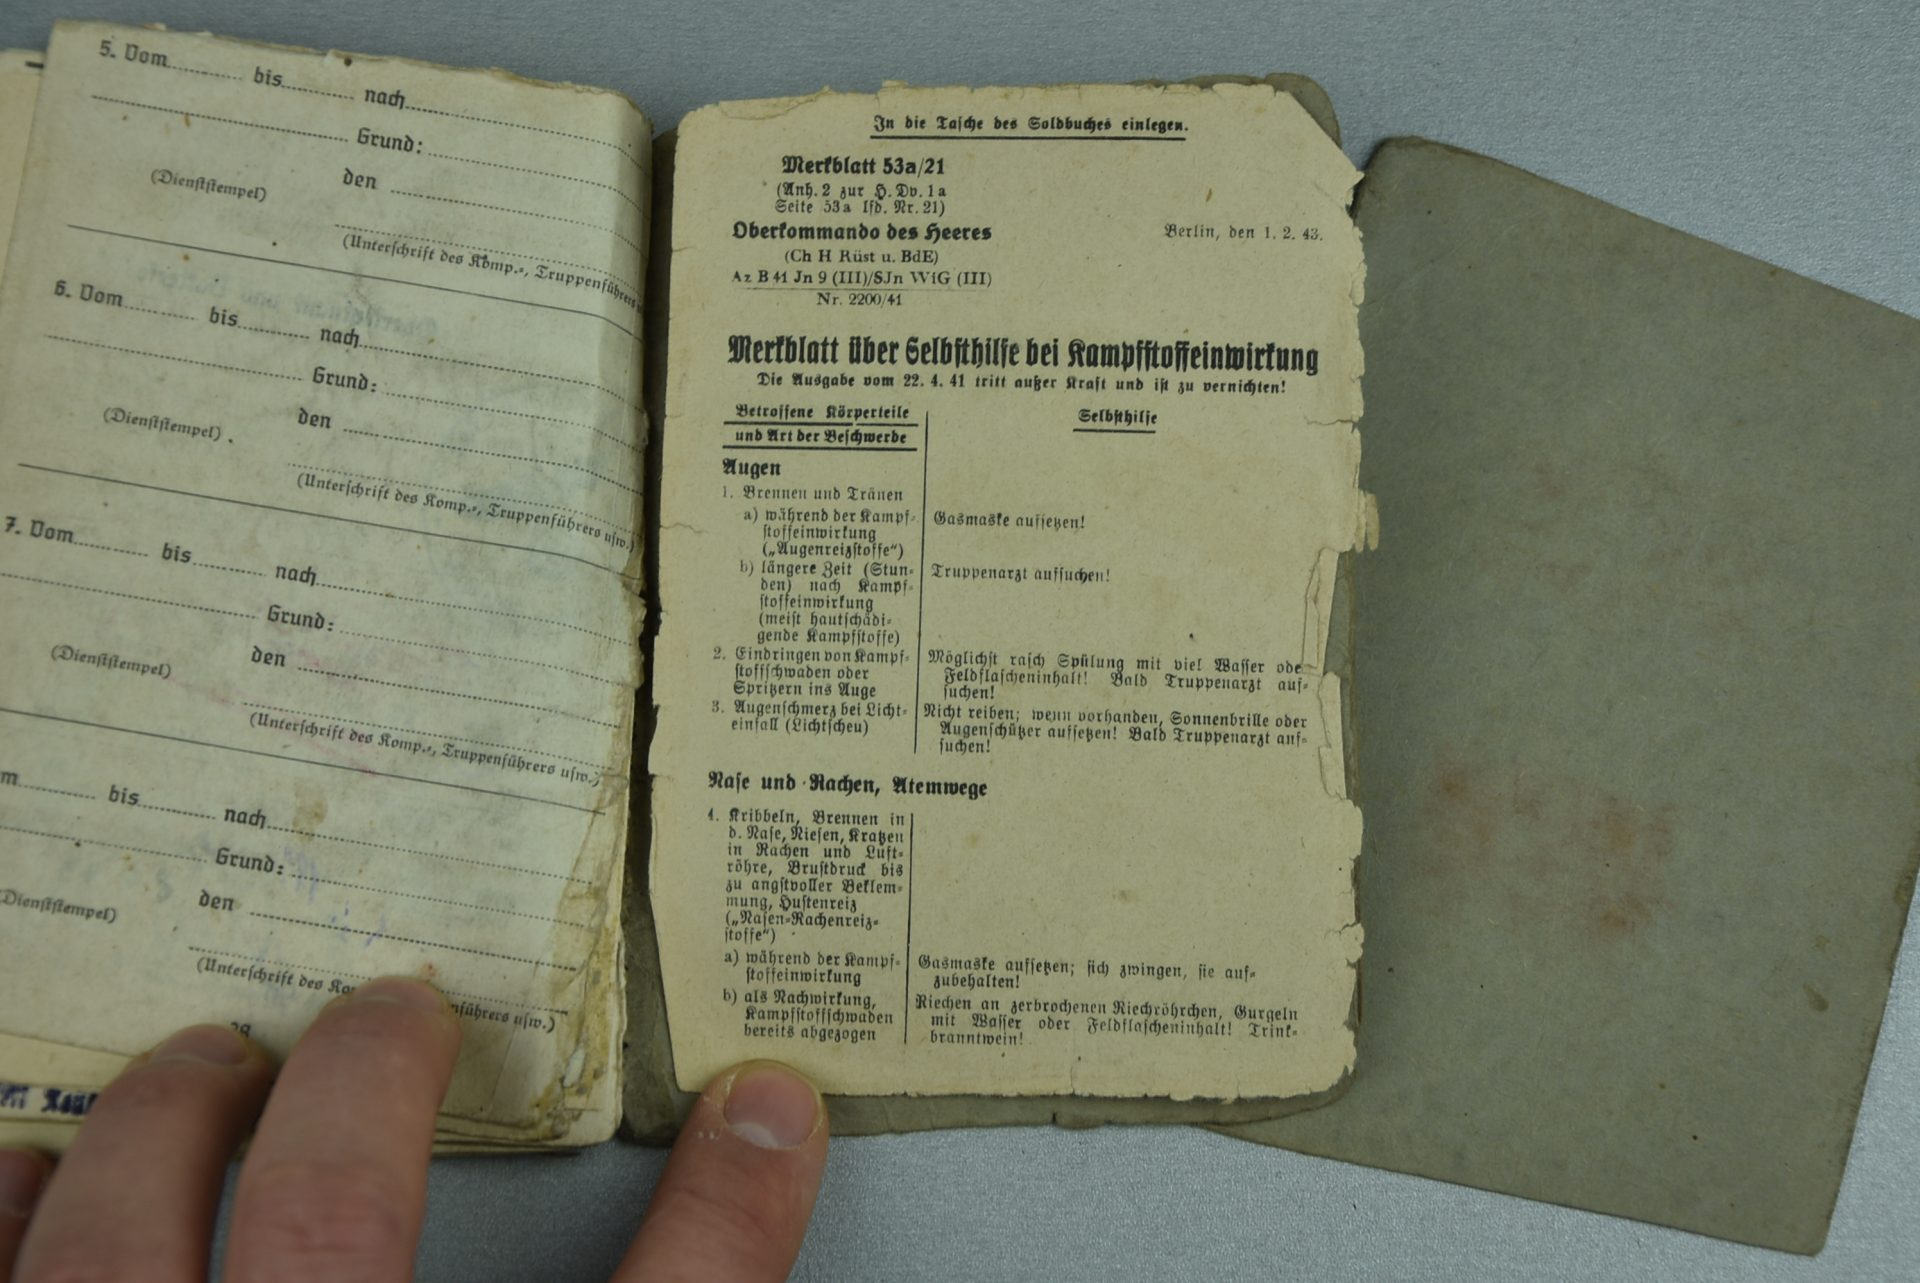 5. Vom bis nach
Grund:
(Dienststempel)
den
(Unterschrift des Komp.-, Truppenführers
6. Vom bis nach
Grund:
(Dienststempel)
den
(Unterschrift des Komp.-, Truppenführers usw.)
7. Vom bis nach
Grund:
(Dienststempel)
den
(Unterschrift des Komp.-, Truppenführers usw.)
bis nach
Grund:
(Dienststempel)
den
(Unterschrift des usw.)
In die Tasche des Soldbuches einlegen.
Merkblatt 53a/21
(Anh. 2 zur H. Dv. 1a
Seite 53a lfd. Nr. 21)
Oberkommando des Heeres
Berlin, den 1. 2. 43.
(Ch H Rüst u. BdE)
Az B 41 Jn 9 (III)/SJn WiG (III)
Nr. 2200/41
Merkblatt über Selbsthilfe bei Kampfstoffeinwirkung
Die Ausgabe vom 22. 4. 41 tritt außer Kraft und ist zu vernichten!
Betroffene Körperteile
und Art der Beschwerde
Selbsthilfe
Augen
1. Brennen und Tränen
a) während der Kampf-
stoffeinwirkung
(„Augenreizstoffe“)
Gasmaske aufsetzen!
b) längere Zeit (Stun-
den) nach Kampf-
stoffeinwirkung
(meist hautschädi-
gende Kampfstoffe)
Truppenarzt aufsuchen!
2. Eindringen von Kampf-
stoffschwaden oder
Spritzern ins Auge
Möglichst rasch Spülung mit viel Wasser ode
Feldflascheninhalt! Bald Truppenarzt auf-
suchen!
3. Augenschmerz bei Licht-
einfall (Lichtscheu)
Nicht reiben; wenn vorhanden, Sonnenbrille oder
Augenschützer aufsetzen! Bald Truppenarzt auf-
suchen!
Nase und Rachen, Atemwege
4. Kribbeln, Brennen in
d. Nase, Niesen, Kratzen
in Rachen und Luft-
röhre, Brustdruck bis
zu angstvoller Beklem-
mung, Hustenreiz
(„Nasen-Rachenreiz-
stoffe“)
a) während der Kampf-
stoffeinwirkung
Gasmaske aufsetzen; sich zwingen, sie auf-
zubehalten!
b) als Nachwirkung,
Kampfstoffschwaden
bereits abgezogen
Riechen an zerbrochenen Riechröhrchen, Gurgeln
mit Wasser oder Feldflascheninhalt! Trink-
branntwein!